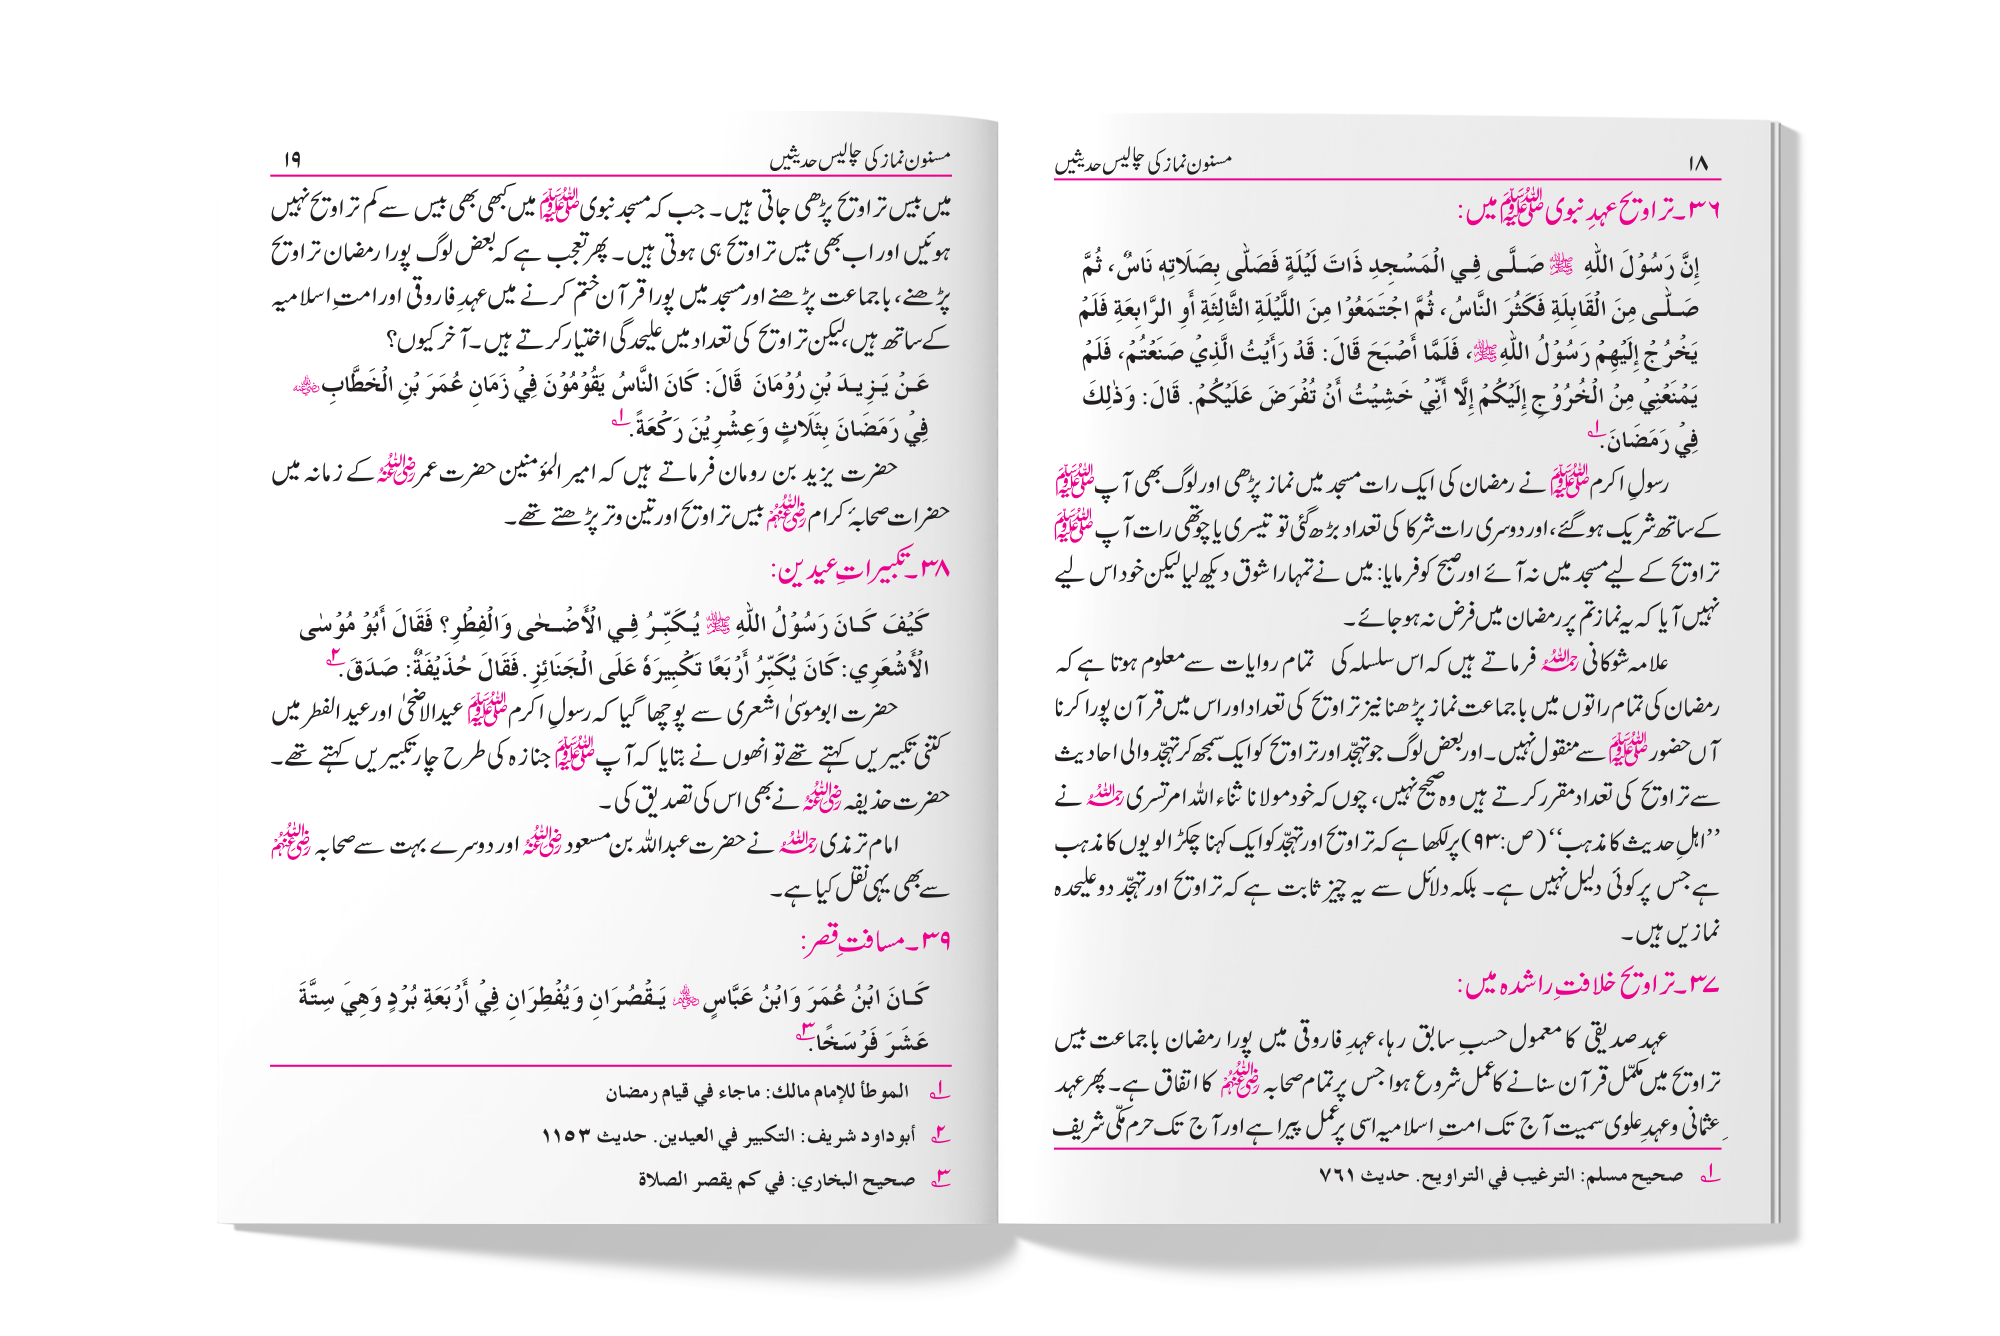 ۱۸
مسنون نماز کی چالیس حدیثیں
۳۶۔تراویح عہدِ نبوی ﷺ میں:
إِنَّ رَسُوْلَ اللّٰهِ ﷺ صَلَّى فِي الْمَسْجِدِ ذَاتَ لَيْلَةٍ فَصَلّٰى بِصَلَاتِهٖ نَاسٌ، ثُمَّ
صَلّٰى مِنَ الْقَابِلَةِ فَكَثُرَ النَّاسُ، ثُمَّ اجْتَمَعُوْا مِنَ اللَّيْلَةِ الثَّالِثَةِ أَوِ الرَّابِعَةِ فَلَمْ
يَخْرُجْ إِلَيْهِمْ رَسُوْلُ اللّٰهِ ﷺ، فَلَمَّا أَصْبَحَ قَالَ: قَدْ رَأَيْتُ الَّذِيْ صَنَعْتُمْ، فَلَمْ
يَمْنَعْنِيْ مِنْ الْخُرُوْجِ إِلَيْكُمْ إِلَّا أَنِّيْ خَشِيْتُ أَنْ تُفْرَضَ عَلَيْكُمْ. قَالَ: وَذٰلِكَ
فِيْ رَمَضَانَ.۱
رسولِ اکرم ﷺ نے رمضان کی ایک رات مسجد میں نماز پڑھی اور لوگ بھی آپ ﷺ
کے ساتھ شریک ہوگئے، اور دوسری رات شرکا کی تعداد بڑھ گئی تو تیسری یا چوتھی رات آپ ﷺ
تراویح کے لیے مسجد میں نہ آئے اور صبح کو فرمایا: میں نے تمہارا شوق دیکھ لیا لیکن خود اس لیے
نہیں آیا کہ یہ نماز تم پر رمضان میں فرض نہ ہوجائے۔
علامہ شوکانی رحمہ اللہ فرماتے ہیں کہ اس سلسلہ کی تمام روایات سے معلوم ہوتا ہے کہ
رمضان کی تمام راتوں میں باجماعت نماز پڑھنا نیز تراویح کی تعداد اور اس میں قرآن پورا کرنا
آں حضور ﷺ سے منقول نہیں۔ اور بعض لوگ جو تہجّد اور تراویح کو ایک سمجھ کر تہجّد والی احادیث
سے تراویح کی تعداد مقرر کرتے ہیں وہ صحیح نہیں، چوں کہ خود مولانا ثناء اللہ امرتسری رحمہ اللہ نے
’’اہلِ حدیث کا مذہب‘‘ (ص:۹۳) پر لکھا ہے کہ تراویح اور تہجّد کو ایک کہنا چکڑالویوں کا مذہب
ہے جس پر کوئی دلیل نہیں ہے۔ بلکہ دلائل سے یہ چیز ثابت ہے کہ تراویح اور تہجّد دو علیحدہ
نمازیں ہیں۔
۳۷۔تراویح خلافتِ راشدہ میں:
عہد صدیقی کا معمول حسبِ سابق رہا، عہدِ فاروقی میں پورا رمضان باجماعت بیس
تراویح میں مکمّل قرآن سنانے کا عمل شروع ہوا جس پر تمام صحابہ رضی اللہ عنہم کا اتفاق ہے۔ پھر عہد
ِعثمانی وعہدِ علوی سمیت آج تک امتِ اسلامیہ اسی پر عمل پیرا ہے اور آج تک حرمِ مکّی شریف
۱ صحيح مسلم: الترغيب في التراويح. حديث ۷٦۱
مسنون نماز کی چالیس حدیثیں
۱۹
میں بیس تراویح پڑھی جاتی ہیں۔ جب کہ مسجد نبوی ﷺ میں کبھی بھی بیس سے کم تراویح نہیں
ہوئیں اور اب بھی بیس تراویح ہی ہوتی ہیں۔ پھر تعجب ہے کہ بعض لوگ پورا رمضان تراویح
پڑھنے، باجماعت پڑھنے اور مسجد میں پورا قرآن ختم کرنے میں عہدِ فاروقی اور امتِ اسلامیہ
کے ساتھ ہیں، لیکن تراویح کی تعداد میں علیحدگی اختیار کرتے ہیں۔ آخر کیوں؟
عَنْ يَزِيدَ بْنِ رُوْمَانَ قَالَ: كَانَ النَّاسُ يَقُوْمُوْنَ فِيْ زَمَانِ عُمَرَ بْنِ الْخَطَّابِ رضي الله عنه
فِيْ رَمَضَانَ بِثَلَاثٍ وَعِشْرِيْنَ رَكْعَةً.۱
حضرت یزید بن رومان فرماتے ہیں کہ امیر المؤمنین حضرت عمر رضی اللہ عنہ کے زمانہ میں
حضرات صحابۂ کرام رضی اللہ عنہم بیس تراویح اور تین وتر پڑھتے تھے۔
۳۸۔تکبیراتِ عیدین:
كَيْفَ كَانَ رَسُوْلُ اللّٰهِ ﷺ يُكَبِّرُ فِي الْأَضْحٰى وَالْفِطْرِ؟ فَقَالَ أَبُوْ مُوْسٰى
الْأَشْعَرِي: كَانَ يُكَبِّرُ أَرْبَعًا تَكْبِيرَهٗ عَلَى الْجَنَائِزِ. فَقَالَ حُذَيْفَةُ: صَدَقَ.۲
حضرت ابوموسیٰ اشعری سے پوچھا گیا کہ رسولِ اکرم ﷺ عیدالاضحیٰ اور عید الفطر میں
کتنی تکبیریں کہتے تھے تو انھوں نے بتایا کہ آپ ﷺ جنازہ کی طرح چار تکبیریں کہتے تھے۔
حضرت حذیفہ رضی اللہ عنہ نے بھی اس کی تصدیق کی۔
امام ترمذی رحمہ اللہ نے حضرت عبداللہ بن مسعود رضی اللہ عنہ اور دوسرے بہت سے صحابہ رضی اللہ عنہم
سے بھی یہی نقل کیا ہے۔
۳۹۔مسافتِ قصر:
كَانَ ابْنُ عُمَرَ وَابْنُ عَبَّاسٍ رضي الله عنهم يَقْصُرَانِ وَيُفْطِرَانِ فِيْ أَرْبَعَةِ بُرْدٍ وَهِيَ سِتَّةَ
عَشَرَ فَرْسَخًا.۳
۱ الموطأ للإمام مالك: ماجاء في قيام رمضان
۲ أبوداود شريف: التكبير في العيدين. حديث ۱۱٥۳
۳ صحيح البخاري: في كم يقصر الصلاة